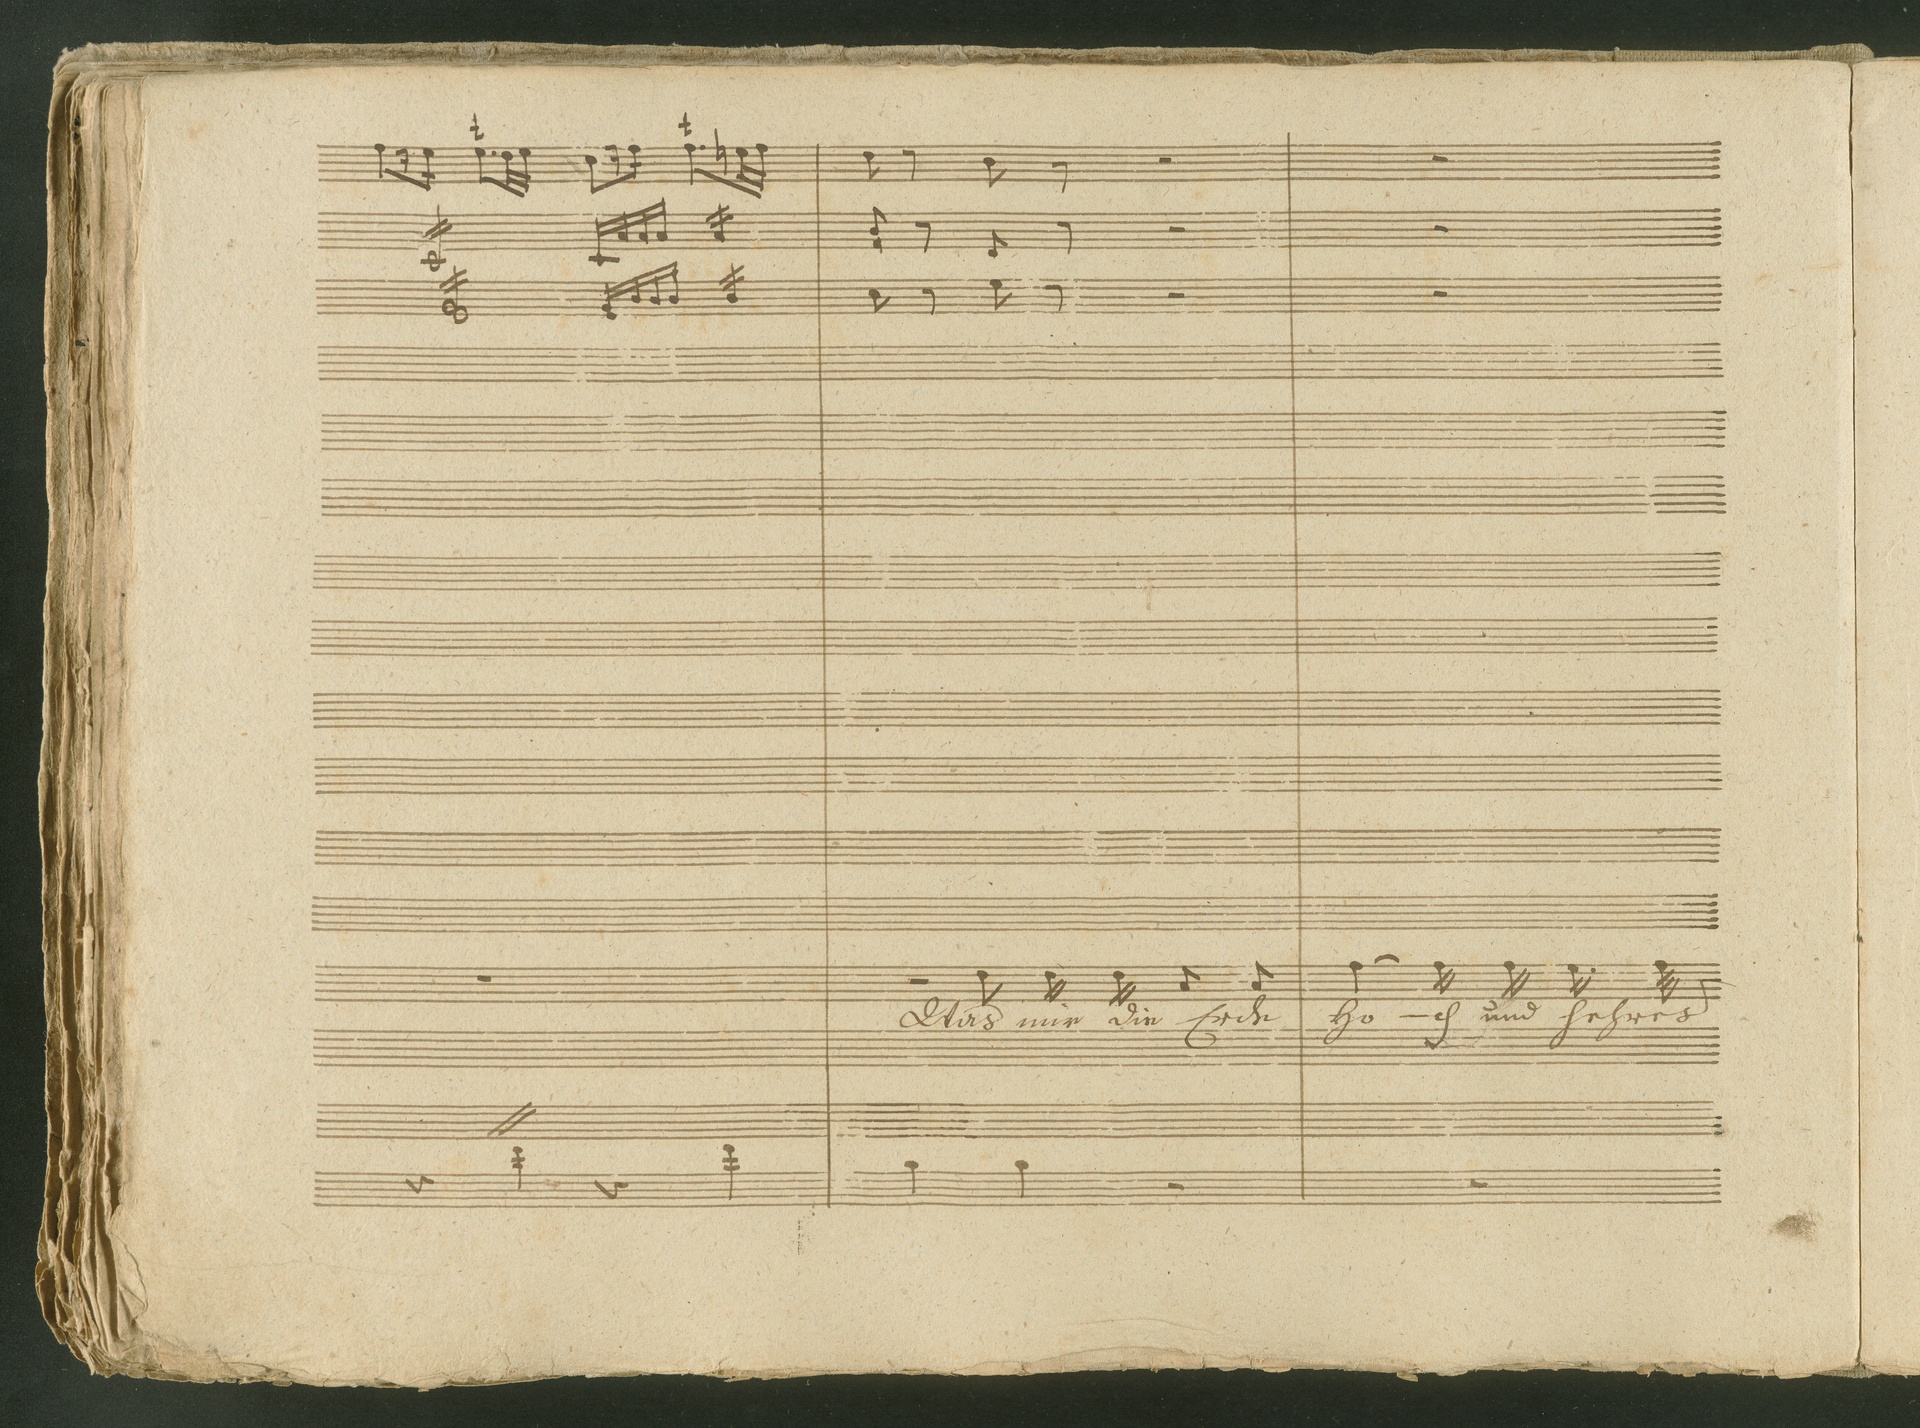 Was mir die Erde Ho-ch und hehres